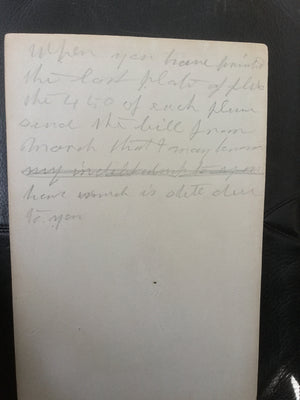 When you have printed
the last plate of
the 450 of each please
send the bill from
March that I may know
my indebtedness to you
how much is still due
to you